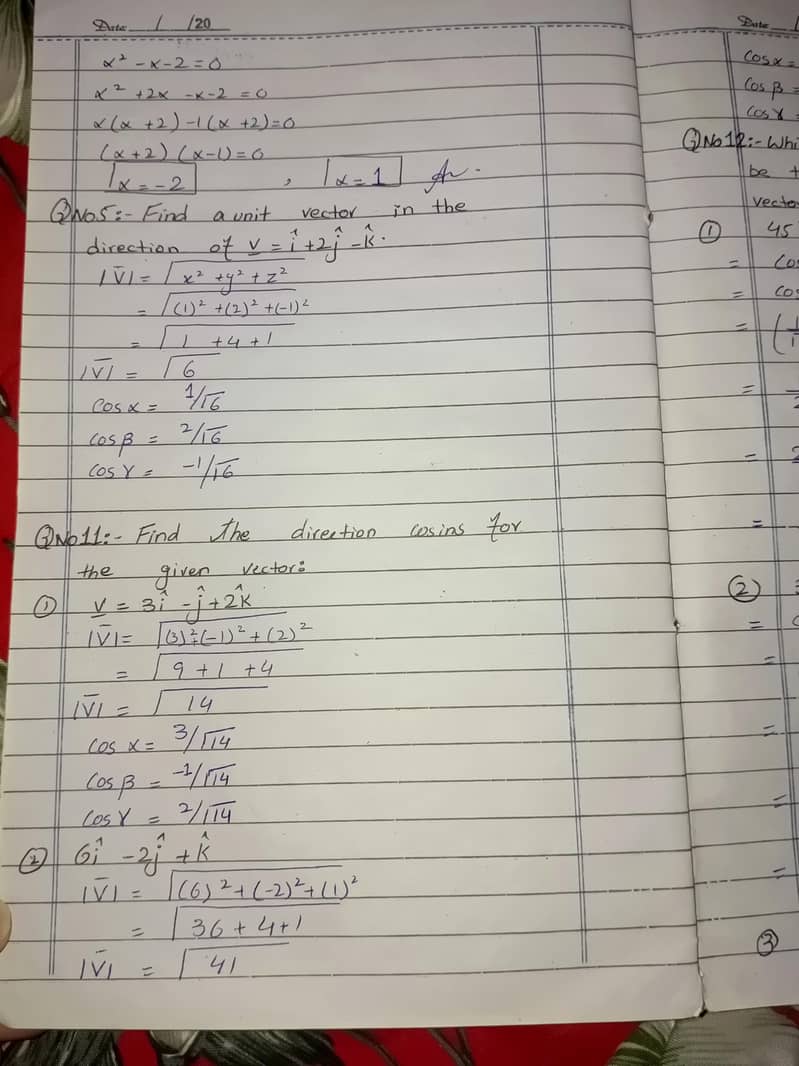 Date / /20
α² - α - 2 = 0
α² + 2α - α - 2 = 0
α(α + 2) - 1(α + 2) = 0
(α + 2) (α - 1) = 0
α = -2 , α = 1
Q No 5:- Find a unit vector in the
direction of v = î + 2ĵ - k̂.
|V̄| = √x² + y² + z²
= √(1)² + (2)² + (-1)²
= √1 + 4 + 1
|V̄| = √6
Cos α = 1/√6
Cos β = 2/√6
Cos γ = -1/√6
Q No 11:- Find the direction cosins for
the given vector:
① v = 3î - ĵ + 2k̂
|V̄| = √(3)² + (-1)² + (2)²
= √9 + 1 + 4
|V̄| = √14
Cos α = 3/√14
Cos β = -1/√14
Cos γ = 2/√14
② 6î - 2ĵ + k̂
|V̄| = √(6)² + (-2)² + (1)²
= √36 + 4 + 1
|V̄| = √41
Date
Cos α =
Cos β =
Cos γ =
Q No 12:- Whi
be
vecto
① 45
= Cos
= cos
=
=
=
=
②
=
=
=
=
=
③